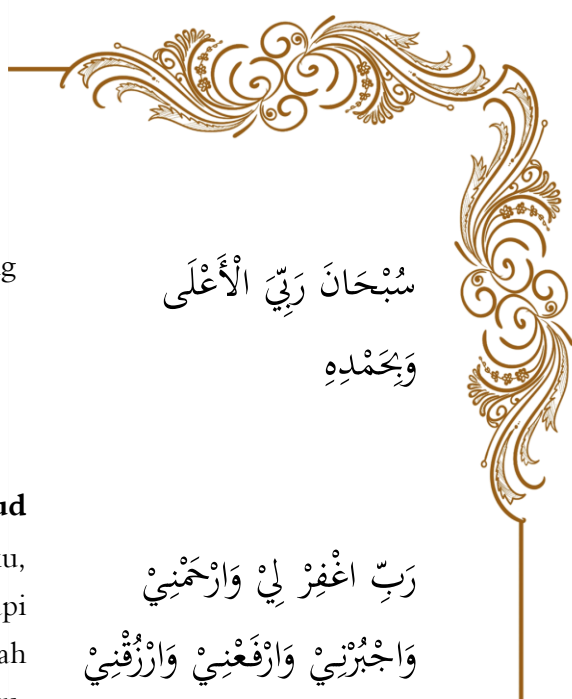 سُبْحَانَ رَبِّيَ الْأَعْلَى
وَبِحَمْدِهِ
رَبِّ اغْفِرْ لِيْ وَارْحَمْنِيْ
وَاجْبُرْنِيْ وَارْفَعْنِيْ وَارْزُقْنِيْ